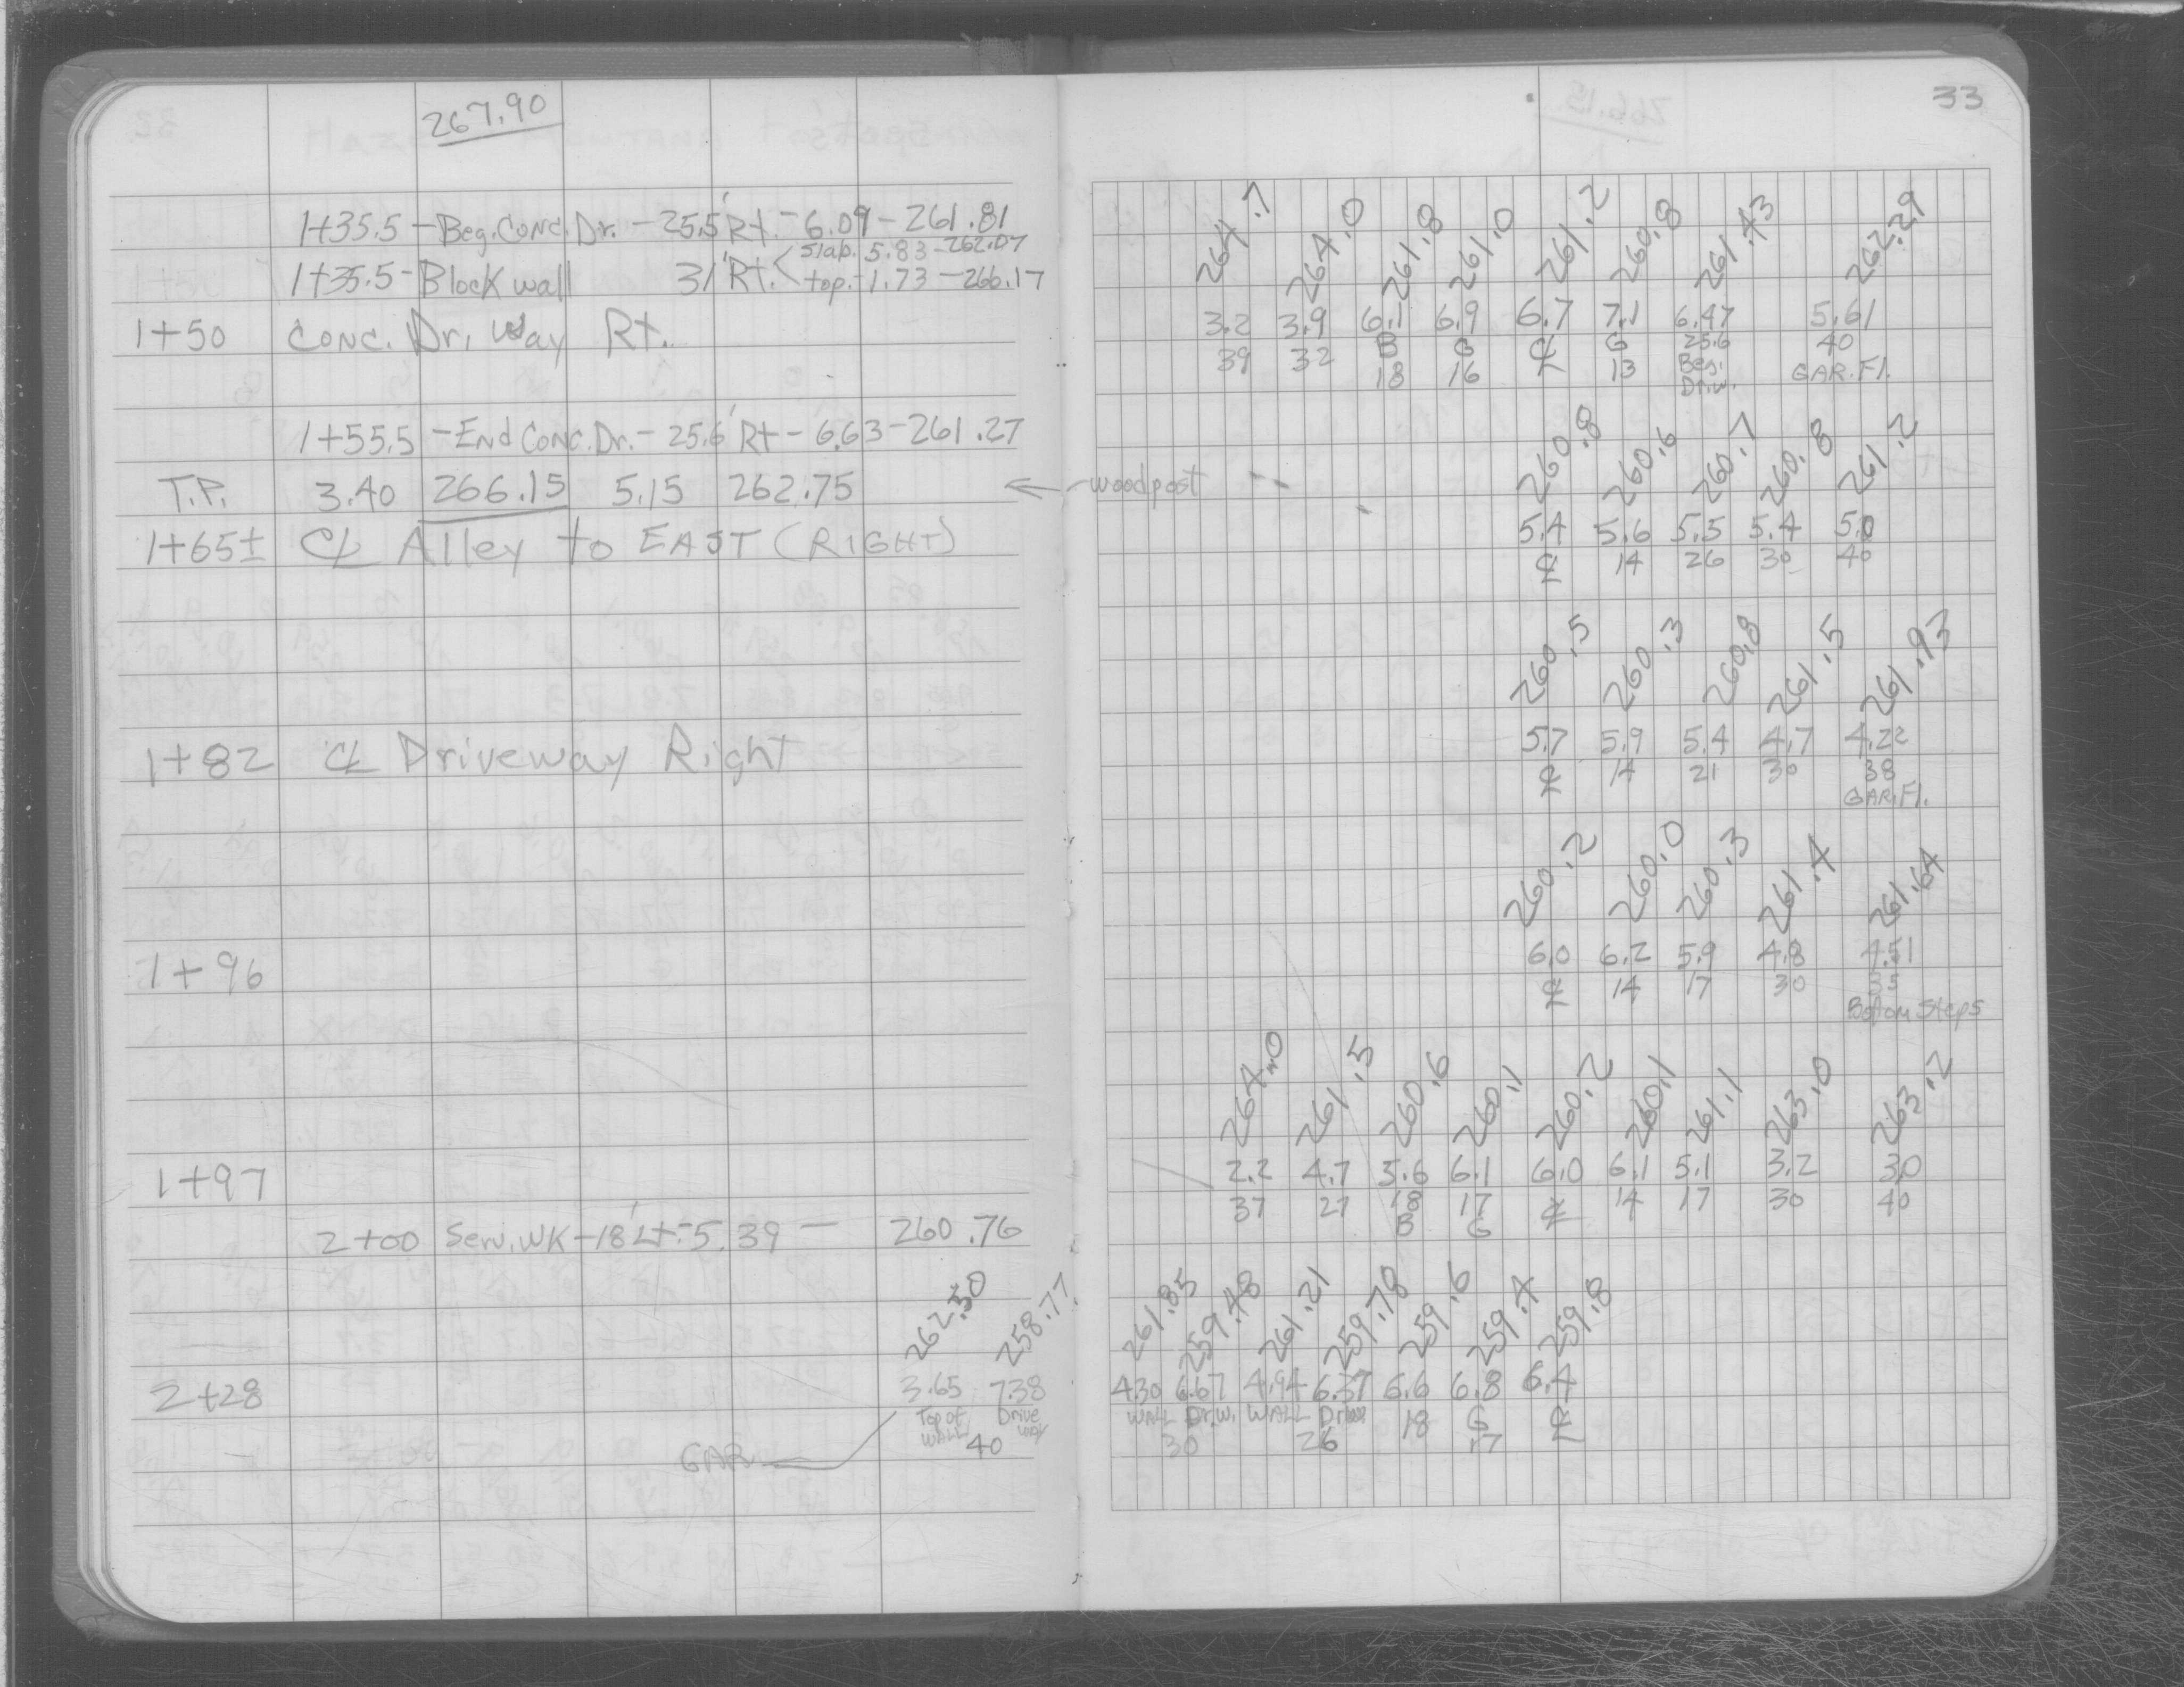 267.90
33
1+35.5 - Beg. Conc. Dr. - 25.5' Rt. - 6.09 - 261.81
slab. 5.83 - 262.07
1+35.5 - Block wall 31' Rt. < top. - 1.73 - 266.17
264.7 264.0 261.8 261.0 261.2 260.8 261.43 262.29
1+50 Conc. Dr. Way Rt. 3.2 3.9 6.1 6.9 6.7 7.1 6.47 5.61
39 32 B G ℄ G 25.6 40
18 16 13 Beg. GAR. Fl.
Dr.w.
1+55.5 - End Conc. Dr. - 25.6' Rt - 6.63 - 261.27
260.8 260.6 260.7 260.8 261.2
T.P. 3.40 266.15 5.15 262.75 ← wood post
1+65± ℄ Alley to EAST (RIGHT) 5.4 5.6 5.5 5.4 5.0
℄ 14 26 30 40
260.5 260.3 260.8 261.5 261.93
1+82 ℄ Driveway Right 5.7 5.9 5.4 4.7 4.22
℄ 14 21 30 38
GAR. Fl.
260.2 260.0 260.3 261.4 261.64
1+96 6.0 6.2 5.9 4.8 4.51
℄ 14 17 30 35
Bottom Steps
264.0 261.5 260.6 260.1 260.2 260.1 261.1 263.0 263.2
1+97 2.2 4.7 5.6 6.1 6.0 6.1 5.1 3.2 3.0
37 27 18 17 ℄ 14 17 30 40
B G
2+00 Serv. WK - 18' Lt. - 5.39 - 260.76
262.50 258.77 261.85 259.48 261.21 259.78 259.6 259.4 259.8
2+28 3.65 7.38 4.30 6.67 4.94 6.37 6.6 6.8 6.4
Top of WALL Drive way WALL Dr.W. WALL Drive 18 G ℄
GAR 40 30 26 17